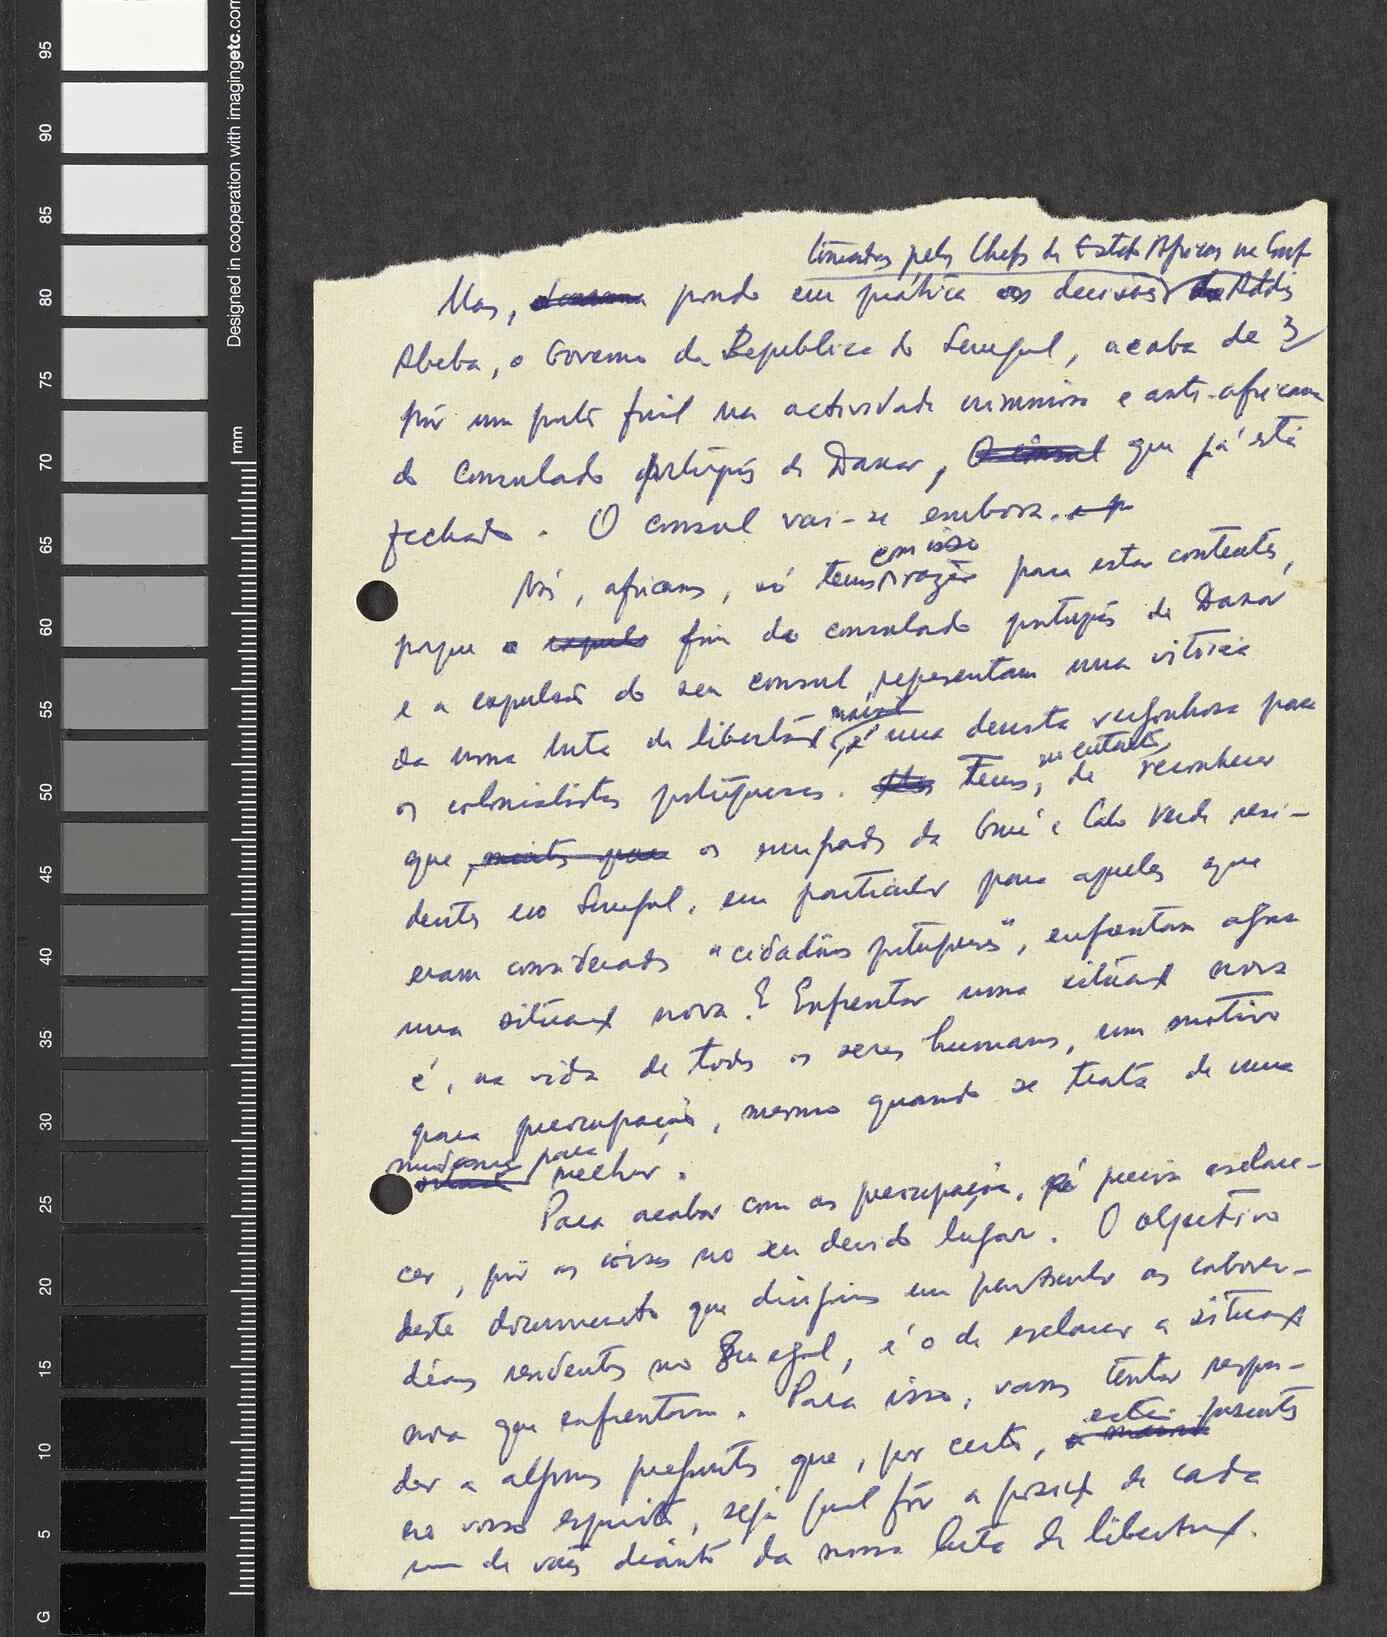 95
90
85
80
75
70
65
60
55
50
45
40
35
30
25
20
15
10
5
G
mm
Designed in cooperation with imagingetc.com
tomadas pelos Chefs de Estado Africos na Conf
Mas, pondo em prática as decisões de Addis
Abeba, o Governo da Republica do Senegal, acaba de
pôr um ponto final na actividade criminosa e anti-africana
do Consulado português de Dakar, O consul que já está
fechado. O consul vai-se embora.
com isso
Nós, africanos, só temos razões para estar contentes,
porque o fim do consulado português de Dakar
e a expulsão do seu consul, representam uma vitória
mais
da nossa luta de libertação, é uma derrota vergonhosa para
os colonialistas portugueses. Mas Temos, no entanto, de reconhecer
que, muitos para os emigrados da Guiné e Cabo Verde resi-
dentes no Senegal, em particular para aqueles que
eram considerados "cidadãos portugueses", enfrentam agora
uma situação nova. E Enfrentar uma situação nova
é, na vida de todos os seres humanos, um motivo
para preocupações, mesmo quando se trata de uma
mudança para
melhor.
Para acabar com as preocupações, só precisa esclare-
cer, pôr as coisas no seu devido lugar. O objectivo
deste documento que dirigimos em particular aos cabover-
deanos residentes no Senegal, é o de esclarecer a situação
nova que enfrentam. Para isso, vamos tentar respon-
der a algumas perguntas que, por certo, estão presentes
no vosso espírito, seja qual fôr a posição de cada
um de vós diante da nossa luta de libertação.